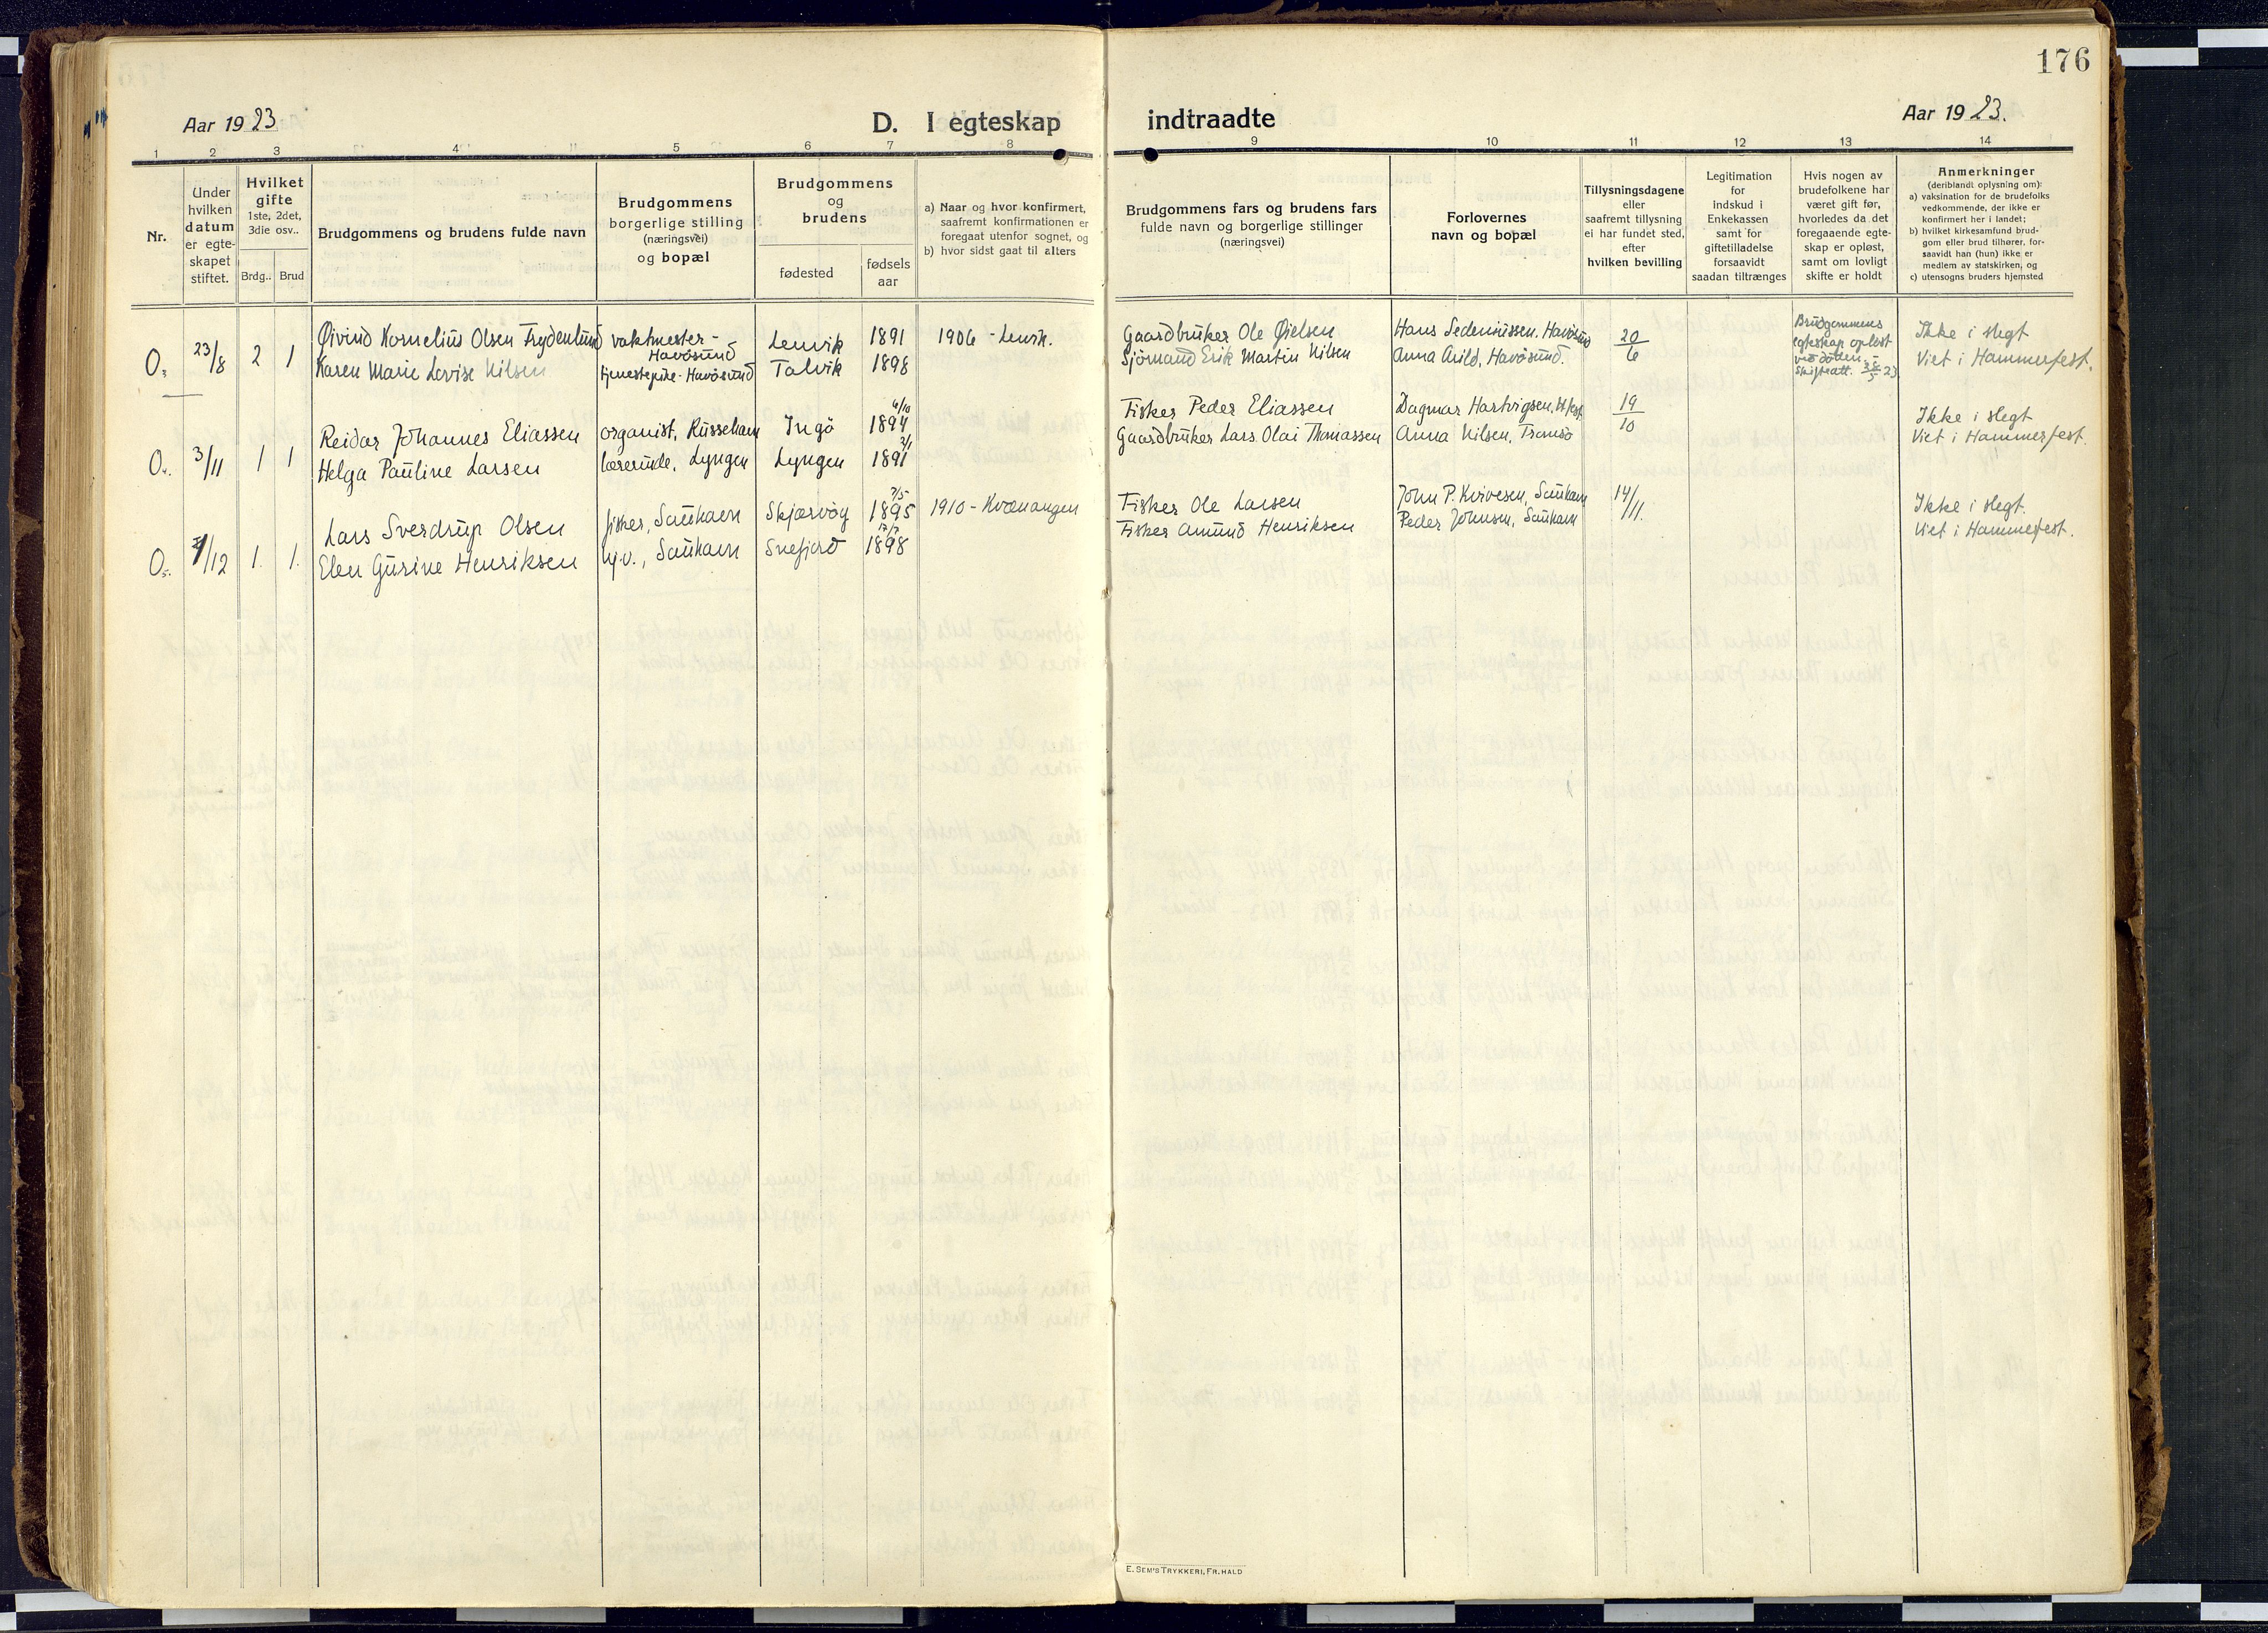 176
Aar 1923.
D. I egteskap
indtraadte
Aar 1923.
1 2 3 4 5 6 7 8 9 10 11 12 13 14
Nr.
Under
hvilken
datum
er egte-
skapet
stiftet.
Hvilket
gifte
1ste, 2det,
3die osv..
Brdg.. Brud
Brudgommens og brudens fulde navn
Brudgommens
borgerlige stilling
(næringsvei)
og bopæl
Brudgommens
og
brudens
fødested
fødsels
aar
a) Naar og hvor konfirmert,
saafremt konfirmationen er
foregaat utenfor sognet, og
b) hvor sidst gaat til alters
Brudgommens fars og brudens fars
fulde navn og borgerlige stillinger
(næringsvei)
Forlovernes
navn og bopæl
Tillysningsdagene
eller
saafremt tillysning
ei har fundet sted,
efter
hvilken bevilling
Legitimation
for
indskud i
Enkekassen
samt for
giftetilladelse
forsaavidt
saadan tiltrænges
Hvis nogen av
brudefolkene har
været gift før,
hvorledes da det
foregaaende egte-
skap er opløst,
samt om lovligt
skifte er holdt
Anmerkninger
(deriblandt oplysning om):
a) vaksination for de brudefolks
vedkommende, der ikke er
konfirmert her i landet;
b) hvilket kirkesamfund brud-
gom eller brud tilhører, for-
saavidt han (hun) ikke er
medlem av statskirken, og
c) utensogns bruders hjemsted
O3 23/8 2 1
Øivind Kornelius Olsen Frydenlund
Karen Marie Lovise Nilsen
vaktmester -
Havösund
tjenestepike - Havösund
Lenvik 1891
Talvik 1898
1906 - Lenvik.
Gaardbruker Ole Øielsen
Sjömand Erik Martin Nilsen
Hans Sedeniussen, Havösund
Anna Arild, Havösund.
20/6
Brudgommens
egteskap oplöst
ved döden.
Skifteatt. 23
Ikke i slegt
Viet i Hammerfest.
O4. 3/11 1 1
Reidar Johannes Eliassen
Helga Pauline Larsen
organist, Russehavn
lærerinde, Lyngen
Ingö 6/10 1894
Lyngen 2/1 1891
Fisker Peder Eliassen
Gaardbruker Lars Olai Thomassen
Dagmar Hartvigsen, H.fest
Anna Nilsen, Tromsö
19/10
Ikke i slegt
Viet i Hammerfest.
O5. 1/12 1. 1.
Lars Sverdrup Olsen
Elen Gurine Henriksen
fisker, Sauhavn
hj.v., Sauhavn
Skjærvöy 7/5 1895
Snefjord 17/7 1898
1910 - Kvænangen
Fisker Ole Larsen
Fisker Amund Henriksen
John P. Kvivesen, Sauhavn
Peder Johnsen, Sauhavn
14/11.
Ikke i slegt.
Viet i Hammerfest.
E. SEM'S TRYKKERI, FR.HALD